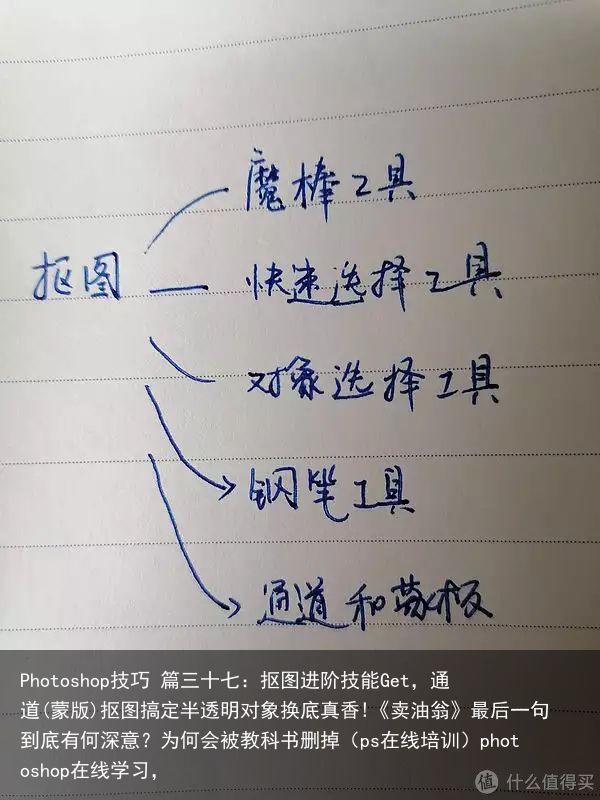 魔棒工具
抠图
快速选择工具
对象选择工具
钢笔工具
通道和蒙板
Photoshop技巧 篇三十七：抠图进阶技能Get，通
道(蒙版)抠图搞定半透明对象换底真香!《卖油翁》最后一句
到底有何深意？为何会被教科书删掉（ps在线培训）phot
oshop在线学习，
值 什么值得买